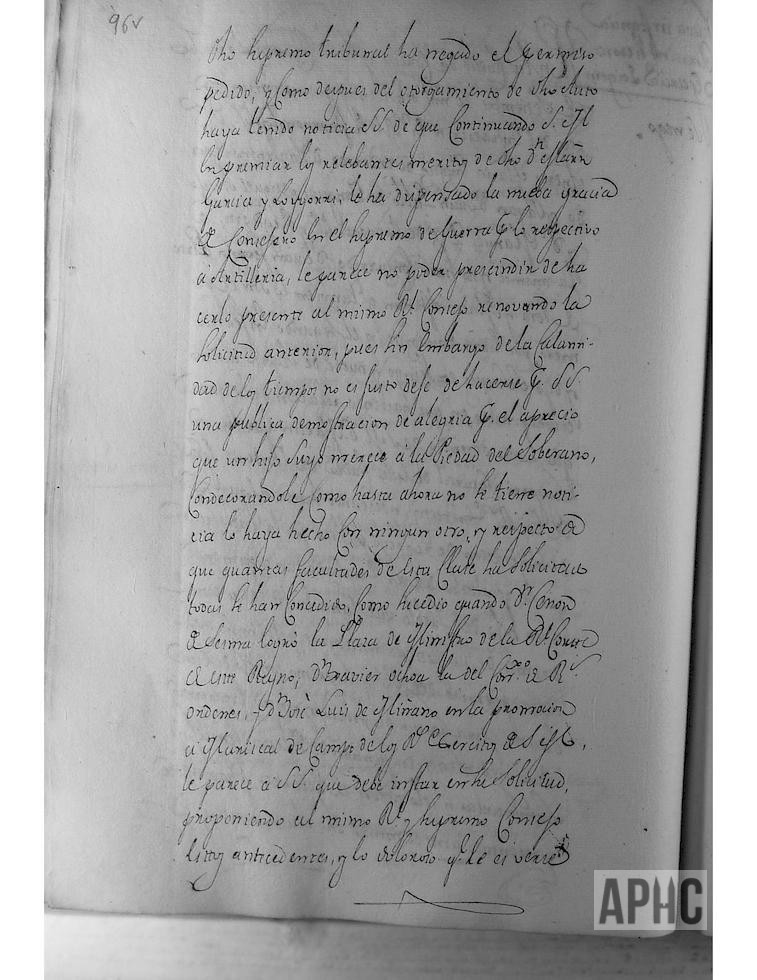 96v
Dho supremo tribunal ha negado el permiso
pedido, y como despues del otorgamiento de dho Auto
haya tenido noticia SS. de que Continuando S. M.
en premiar los relebantes meritos de dho Dn Martn
Garcia y Loygorri, le ha dispensado la nueba gracia
de Consejero en el supremo de Guerra p. lo respectivo
a Artilleria, le parece no poder prescindir de ha
cerlo presente al mismo Rl. Consejo renovando la
Solicitud anterior, pues sin embargo de la Calami-
dad de los tiempos no es justo deje de hacerse p. SS.
una publica demostracion de alegria p. el aprecio
que un hijo suyo merece a la Piedad del Soberano,
Condecorandole como hasta ahora no se tiene noti-
cia lo haya hecho Con ningun otro, y respecto de
que quantas facultades de esta Clase ha solicitado
todas se han Concedido, Como sucedio quando Dn Cenon
de Sesma logrò la Plaza de Ministro de la Rl Corte
de este Reyno, Dn Xavier Ochoa la del Con.xo de Rs.
ordenes, y Dn Josè Luis de Miñano en la promocion
a Mariscal de Campo de los Rs Exercitos de S. M.,
le parece a SS. que debe instar en su Solicitud,
proponiendo al mismo Rl. y supremo Consejo
estos antecedentes, y lo doloroso q. le es verse
APHC